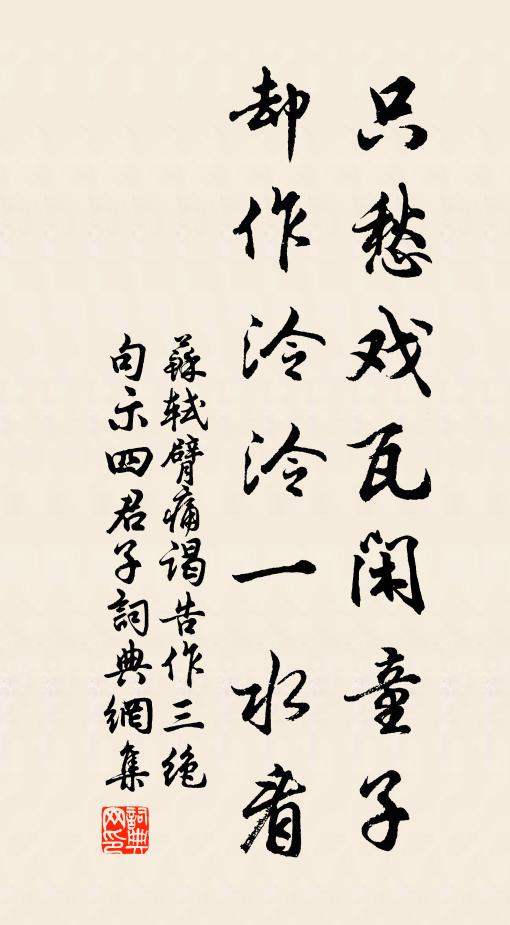 只愁戏瓦闲童子
却作泠泠一水看
苏轼臂痛谒告作三绝
句示四君子詞典網集
詞典
网印